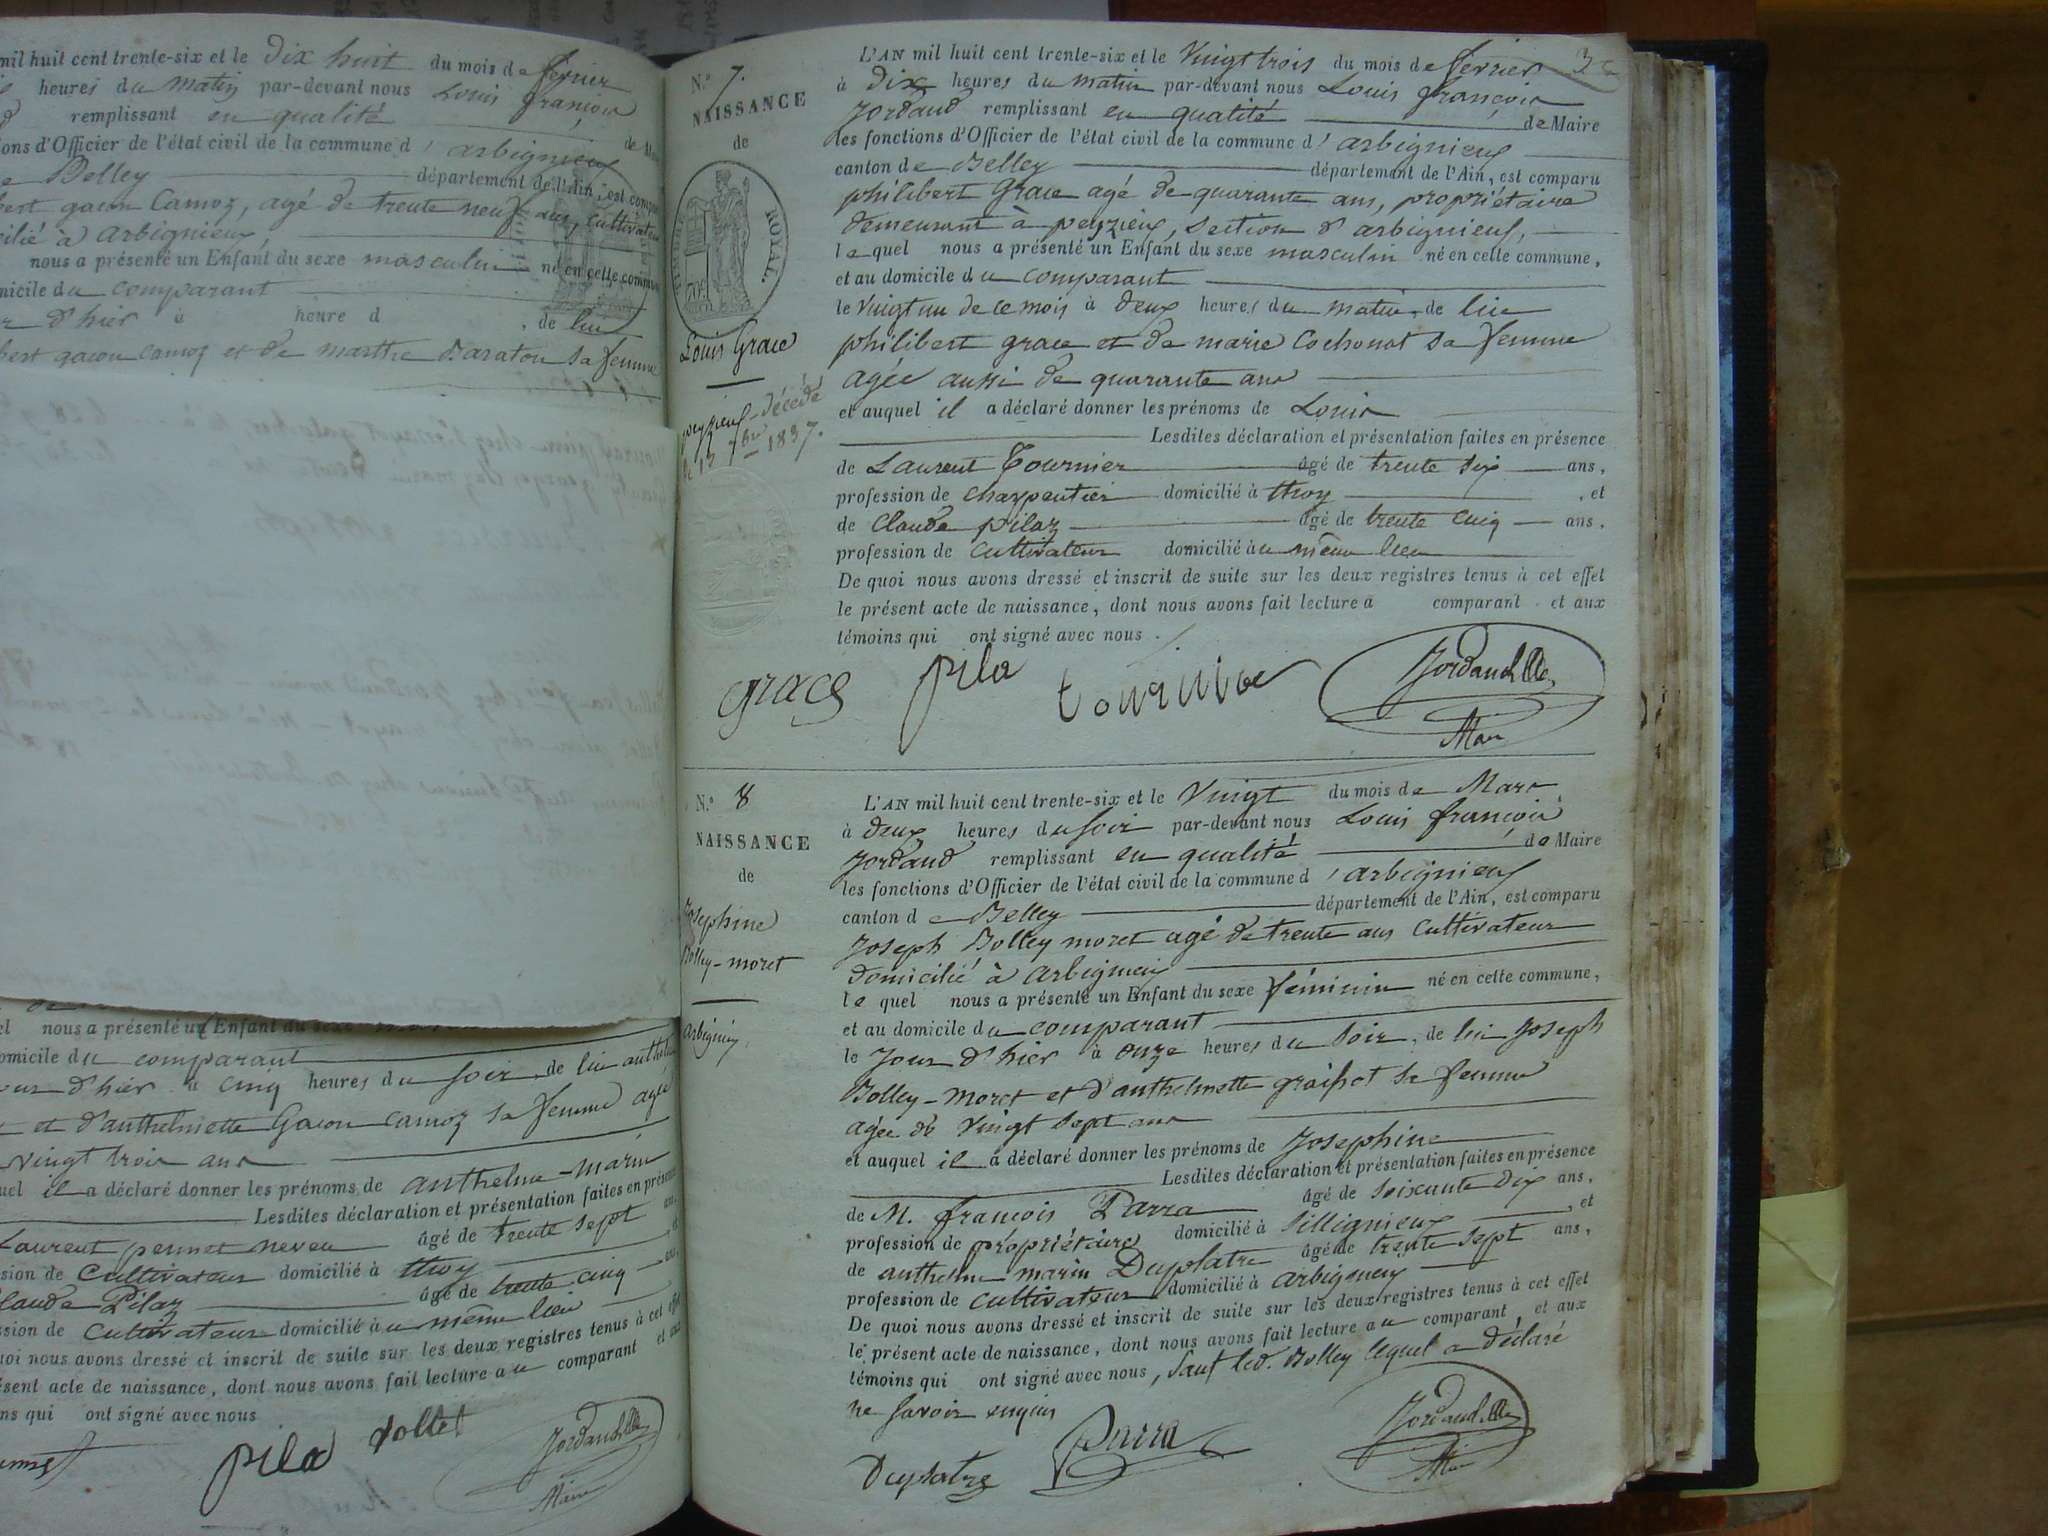 mil huit cent trente-six et le dix huit du mois de fevrier
heures du matin par-devant nous Louis françois
remplissant en qualité de Maire
ions d'Officier de l'état civil de la commune d'arbignieux
Belley département de l'Ain, est comparu
bert gacon Camoz, agé de trente neuf ans, cultivateur
cilié à arbignieux,
nous a présenté un Enfant du sexe masculin né en cette commune
micile du comparant
r d'hier à heure d , de lui
bert gacon camoz et de marthe Baraton sa femme
nous a présenté un Enfant du sexe
omicile du comparant
our d'hier à cinq heures du soir, de lui anthelme
et d'anthelmette Gacon camoz sa femme agée
vingt trois ans
uel il a déclaré donner les prénoms de anthelme-marin
Lesdites déclaration et présentation faites en présence
Laurent pennet neveu âgé de trente sept ans,
sion de Cultivateur domicilié à thoy , et
Claude Pilaz âgé de trente cinq ans,
ssion de Cultivateur domicilié au même lieu
uoi nous avons dressé et inscrit de suite sur les deux registres tenus à cet effet
ésent acte de naissance, dont nous avons fait lecture au comparant et aux
ins qui ont signé avec nous
pila Jordand
Maire
N.° 7.
NAISSANCE
de
TIMBRE ROYAL.
Louis Grace
peyzieux - décédé
le 13 7bre 1837.
L'AN mil huit cent trente-six et le Vingt trois du mois de fevrier
à dix heures du matin par-devant nous Louis françois
Jordand remplissant en qualité de Maire
les fonctions d'Officier de l'état civil de la commune d'arbignieux
canton de Belley département de l'Ain, est comparu
philibert Grace agé de quarante ans, propriétaire
demeurant à peyzieux, section d'arbignieux,
lequel nous a présenté un Enfant du sexe masculin né en cette commune,
et au domicile du comparant
le vingt un de ce mois à deux heures du matin, de lui
philibert grace et de marie Cochonat sa femme
agée aussi de quarante ans
et auquel il a déclaré donner les prénoms de Louis
Lesdites déclaration et présentation faites en présence
de Laurent Tournier âgé de trente six ans,
profession de charpentier domicilié à thoy , et
de Claude pilaz âgé de trente cinq ans,
profession de cultivateur domicilié au même lieu
De quoi nous avons dressé et inscrit de suite sur les deux registres tenus à cet effet
le présent acte de naissance, dont nous avons fait lecture a comparant et aux
témoins qui ont signé avec nous.
grace pila tournier Jordand
Maire
N.° 8
NAISSANCE
de
Josephine
Bolley-moret
arbignieux
L'AN mil huit cent trente-six et le Vingt du mois de Mars
à deux heures du soir par-devant nous Louis françois
Jordand remplissant en qualité de Maire
les fonctions d'Officier de l'état civil de la commune d'arbignieux
canton de Belley département de l'Ain, est comparu
Joseph Bolley moret agé de trente ans Cultivateur
domicilié à arbignieux
lequel nous a présenté un Enfant du sexe féminin né en cette commune,
et au domicile du comparant
le jour d'hier à onze heures du soir, de lui Joseph
Bolley-Moret et d'anthelmette graissot sa femme
agée de vingt sept ans
et auquel il a déclaré donner les prénoms de Josephine
Lesdites déclaration et présentation faites en présence
de M. françois Parra âgé de soixante dix ans,
profession de propriétaire domicilié à Sillignieux , et
de anthelme marin Duplatre âgé de trente sept ans,
profession de cultivateur domicilié à arbignieux
De quoi nous avons dressé et inscrit de suite sur les deux registres tenus à cet effet
le présent acte de naissance, dont nous avons fait lecture au comparant et aux
témoins qui ont signé avec nous, sauf led. Bolley lequel a déclaré
ne savoir
Duplatre Parra Jordand
Maire